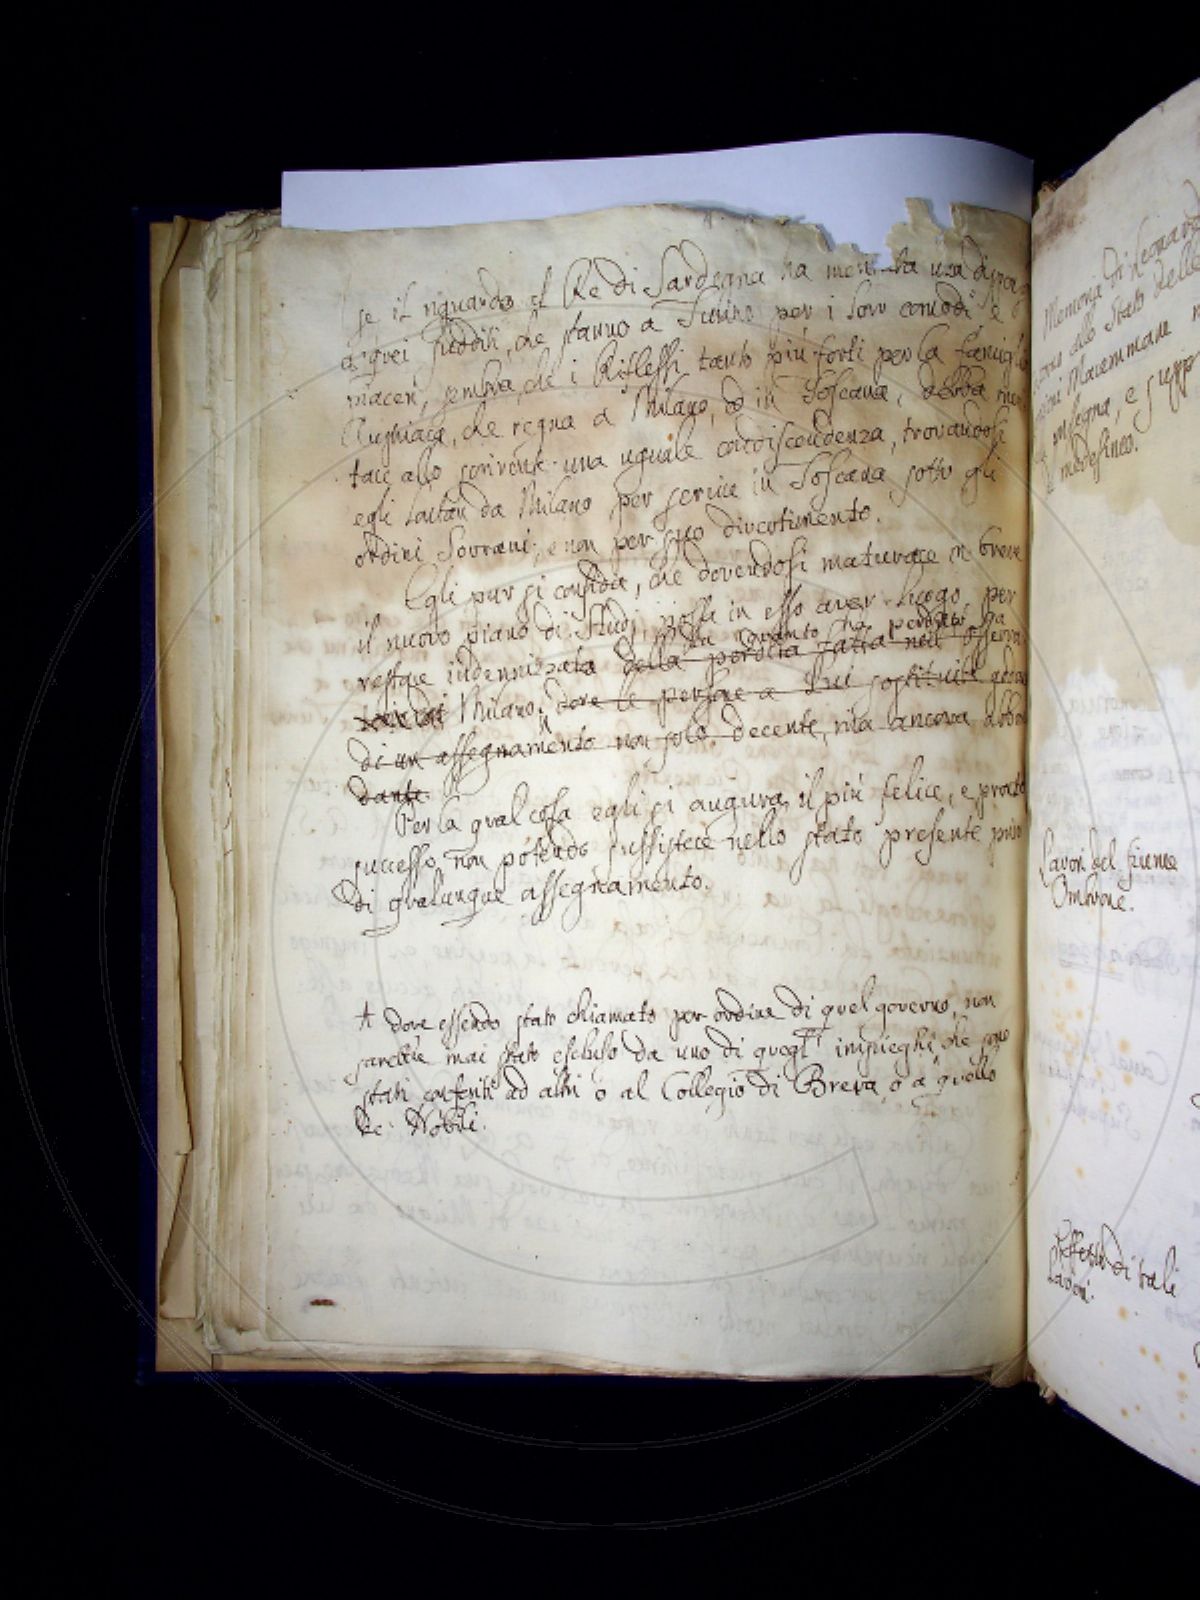 se il riguardo al Re di Sardegna ha meritata una dispensa
a quei sudditi, che stanno a Torino per i loro comodi e
piaceri, sembra, che i Riflessi tanto più forti per la famiglia
Austriaca, che regna a Milano, ed in Toscana, debba meri
tare allo scrivente una uguale condiscendenza, trovandosi
egli lontan da Milano per servire in Toscana sotto gli
ordini Sovrani, e non per suo divertimento.
Egli pur si confida, che dovendosi maturare in breve
il nuovo piano di Studj, possa in esso aver luogo per
di quanto ha perduto a
restare indennizzato della perdita fatta nell' osserva
torio di Milano, dove le persone a Lui sostituite godon
di un assegnamento non solo decente, ma ancora abbon
dante.
Per la qual cosa egli si augura il più felice, e pronto
successo, non potendo sussistere nello stato presente privo
di qualunque assegnamento.
A dove essendo stato chiamato per ordine di quel governo, non
sarebbe mai stato escluso da uno di quegl' impieghi che sono
stati conferiti ad altri o al Collegio di Brera, o a quello
de' Nobili.
Memoria di Leonardo
allo Stato delle
Maremmane
insegna, e supp
medesimo.
Lavori del fiume
Ombrone.
Effetto di tali
Lavori.